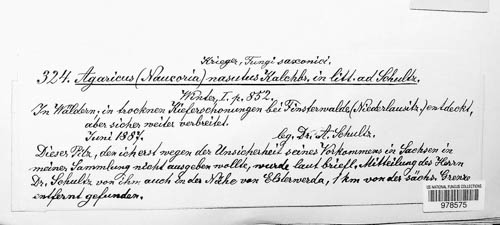 Krieger, Fungi saxonici.
324. Agaricus (Naucoria) nasutus Kalchbr. in litt. ad Schultz.
Winter, I. p. 852.
In Wäldern, in trocknen Kieferschonungen bei Finsterwalde (Niederlausitz) entdeckt,
aber sicher weiter verbreitet.
Juni 1887. leg. Dr. A. Schultz.
Dieser Pilz, den ich erst wegen der Unsicherheit seines Vorkommens in Sachsen in
meiner Sammlung nicht ausgeben wollte, wurde laut briefl. Mitteilung des Herrn
Dr. Schultz von ihm auch in der Nähe von Elsterwerda, 1 km von der sächs. Grenze
entfernt gefunden.
US NATIONAL FUNGUS COLLECTIONS
978575